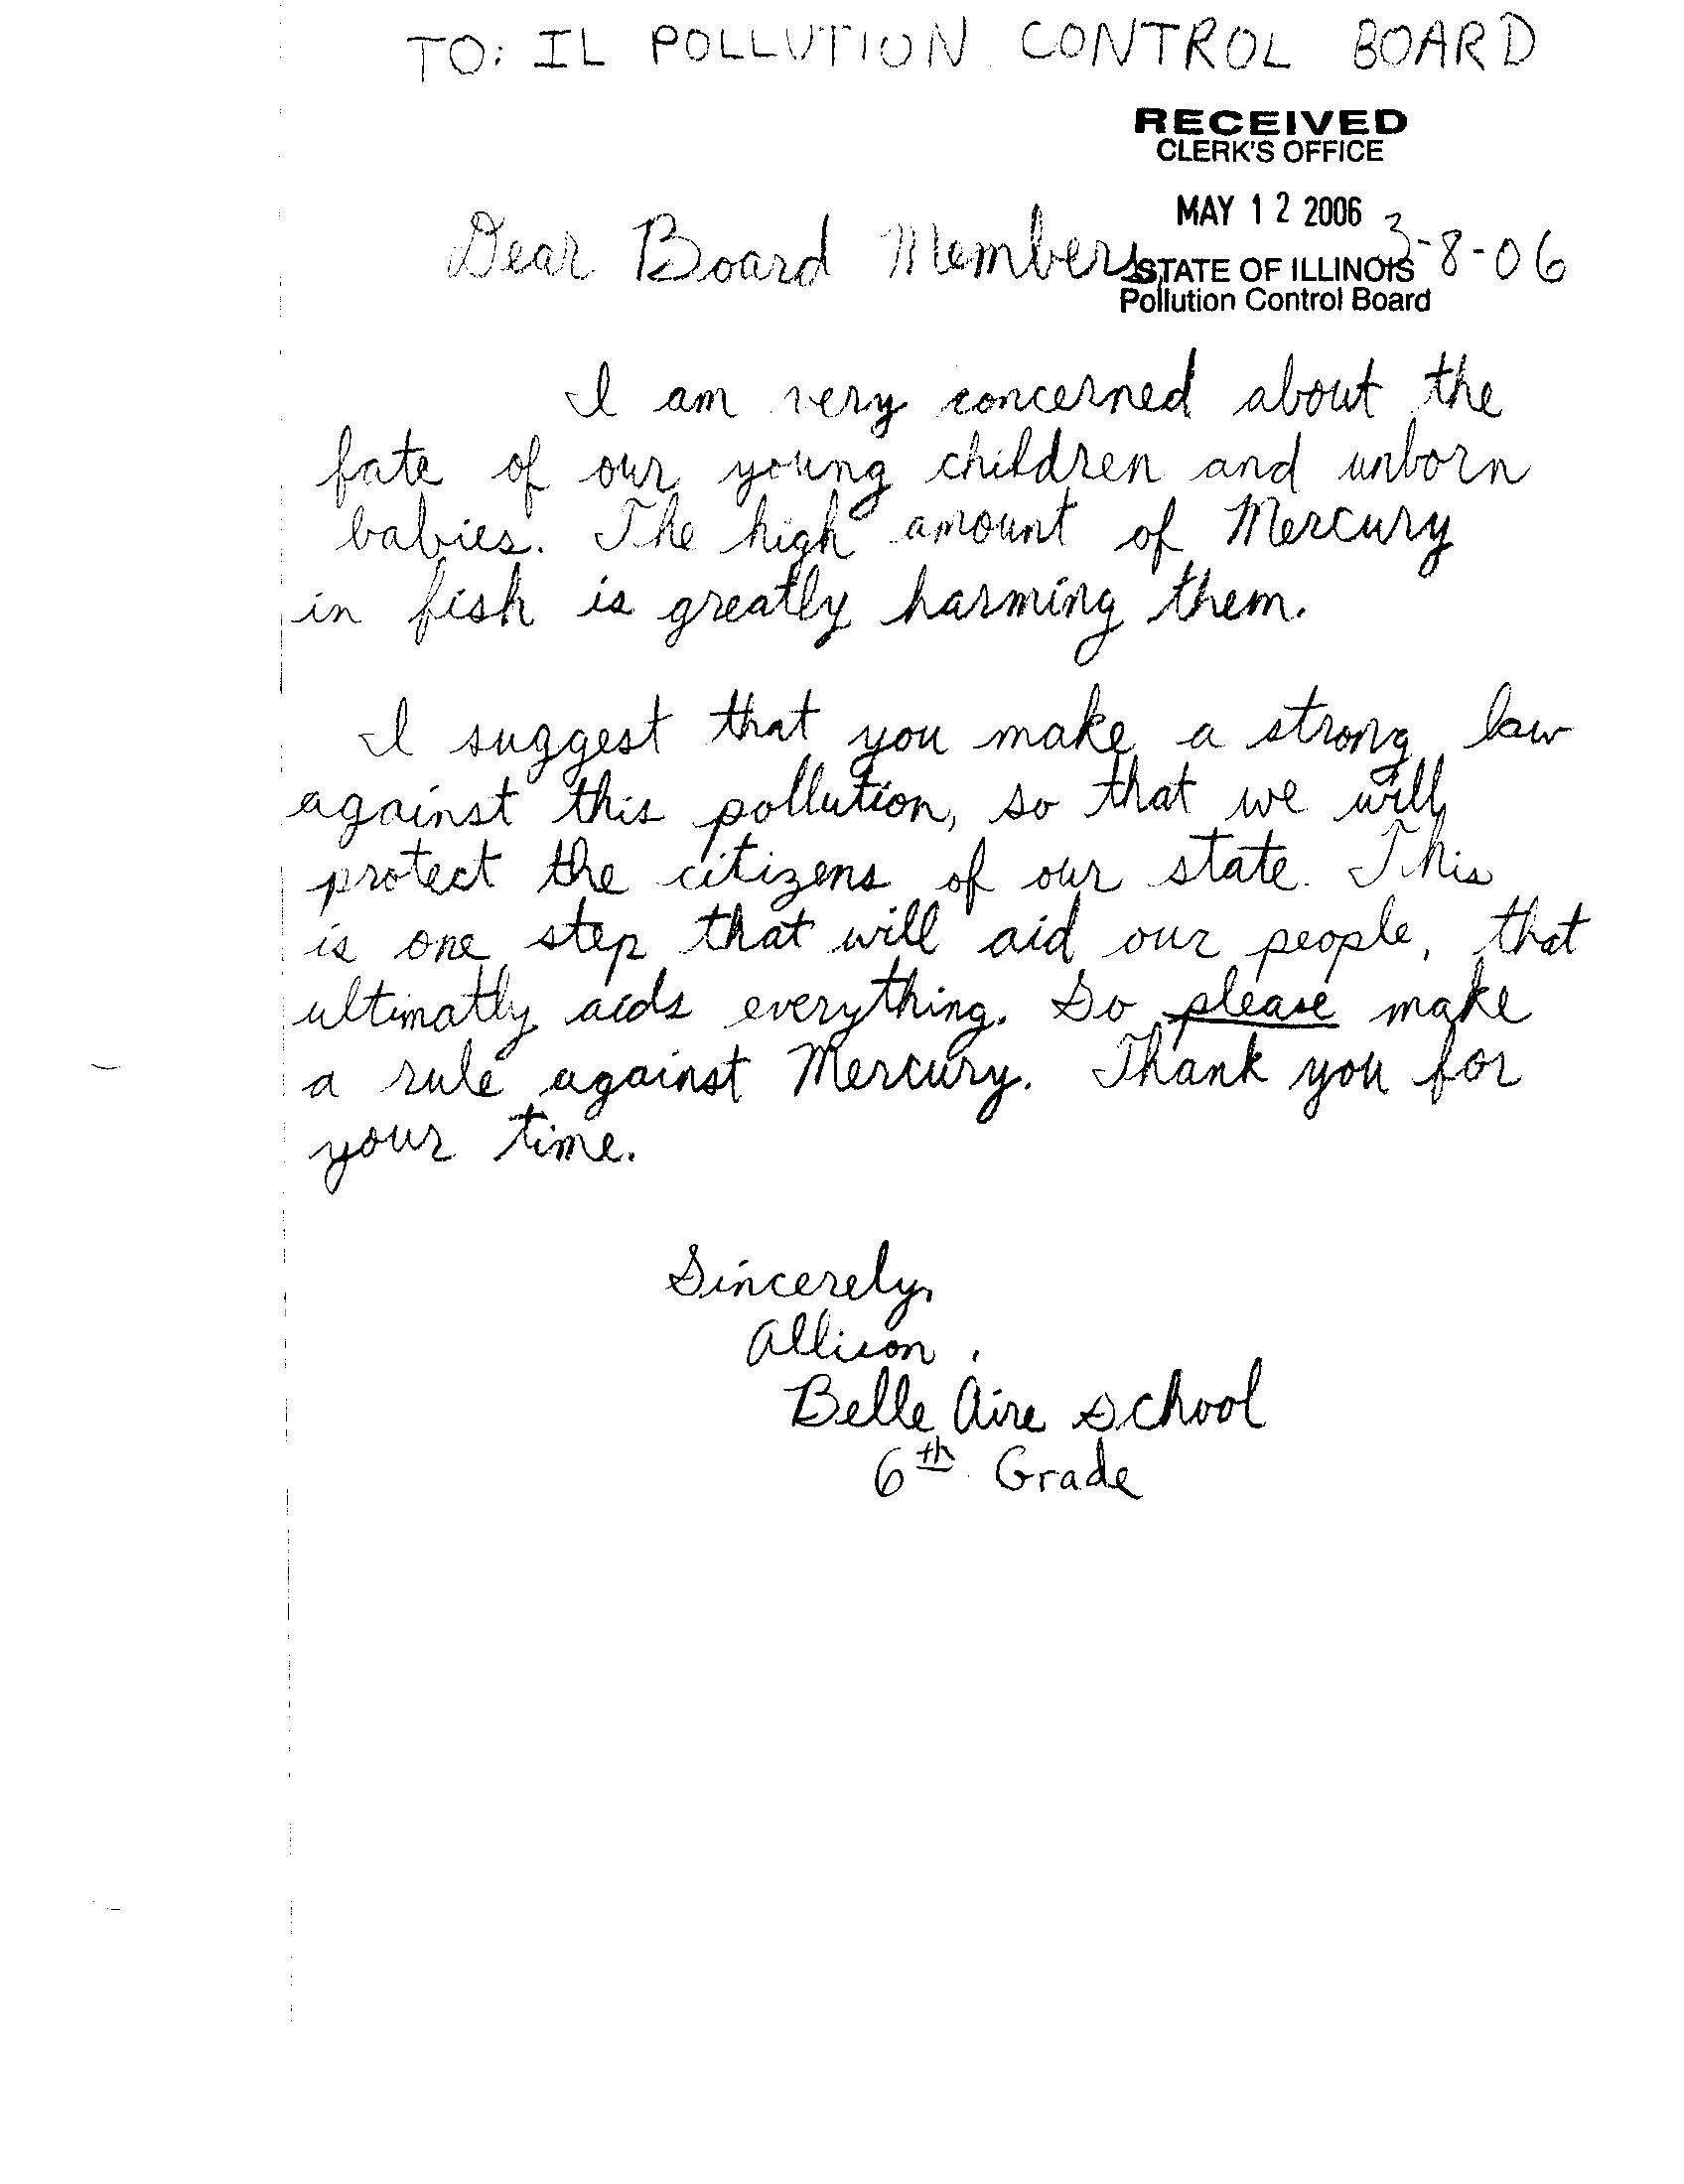 TO: IL POLLUTION CONTROL BOARD
RECEIVED
CLERK'S OFFICE
MAY 12 2006
STATE OF ILLINOIS
Pollution Control Board
Dear Board Members, 3-8-06
I am very concerned about the
fate of our young children and unborn
babies. The high amount of Mercury
in fish is greatly harming them.
I suggest that you make a strong law
against this pollution, so that we will
protect the citizens of our state. This
is one step that will aid our people, that
ultimatly aids everything. So please make
a rule against Mercury. Thank you for
your time.
Sincerely,
Allison,
Belle Aire School
6th Grade